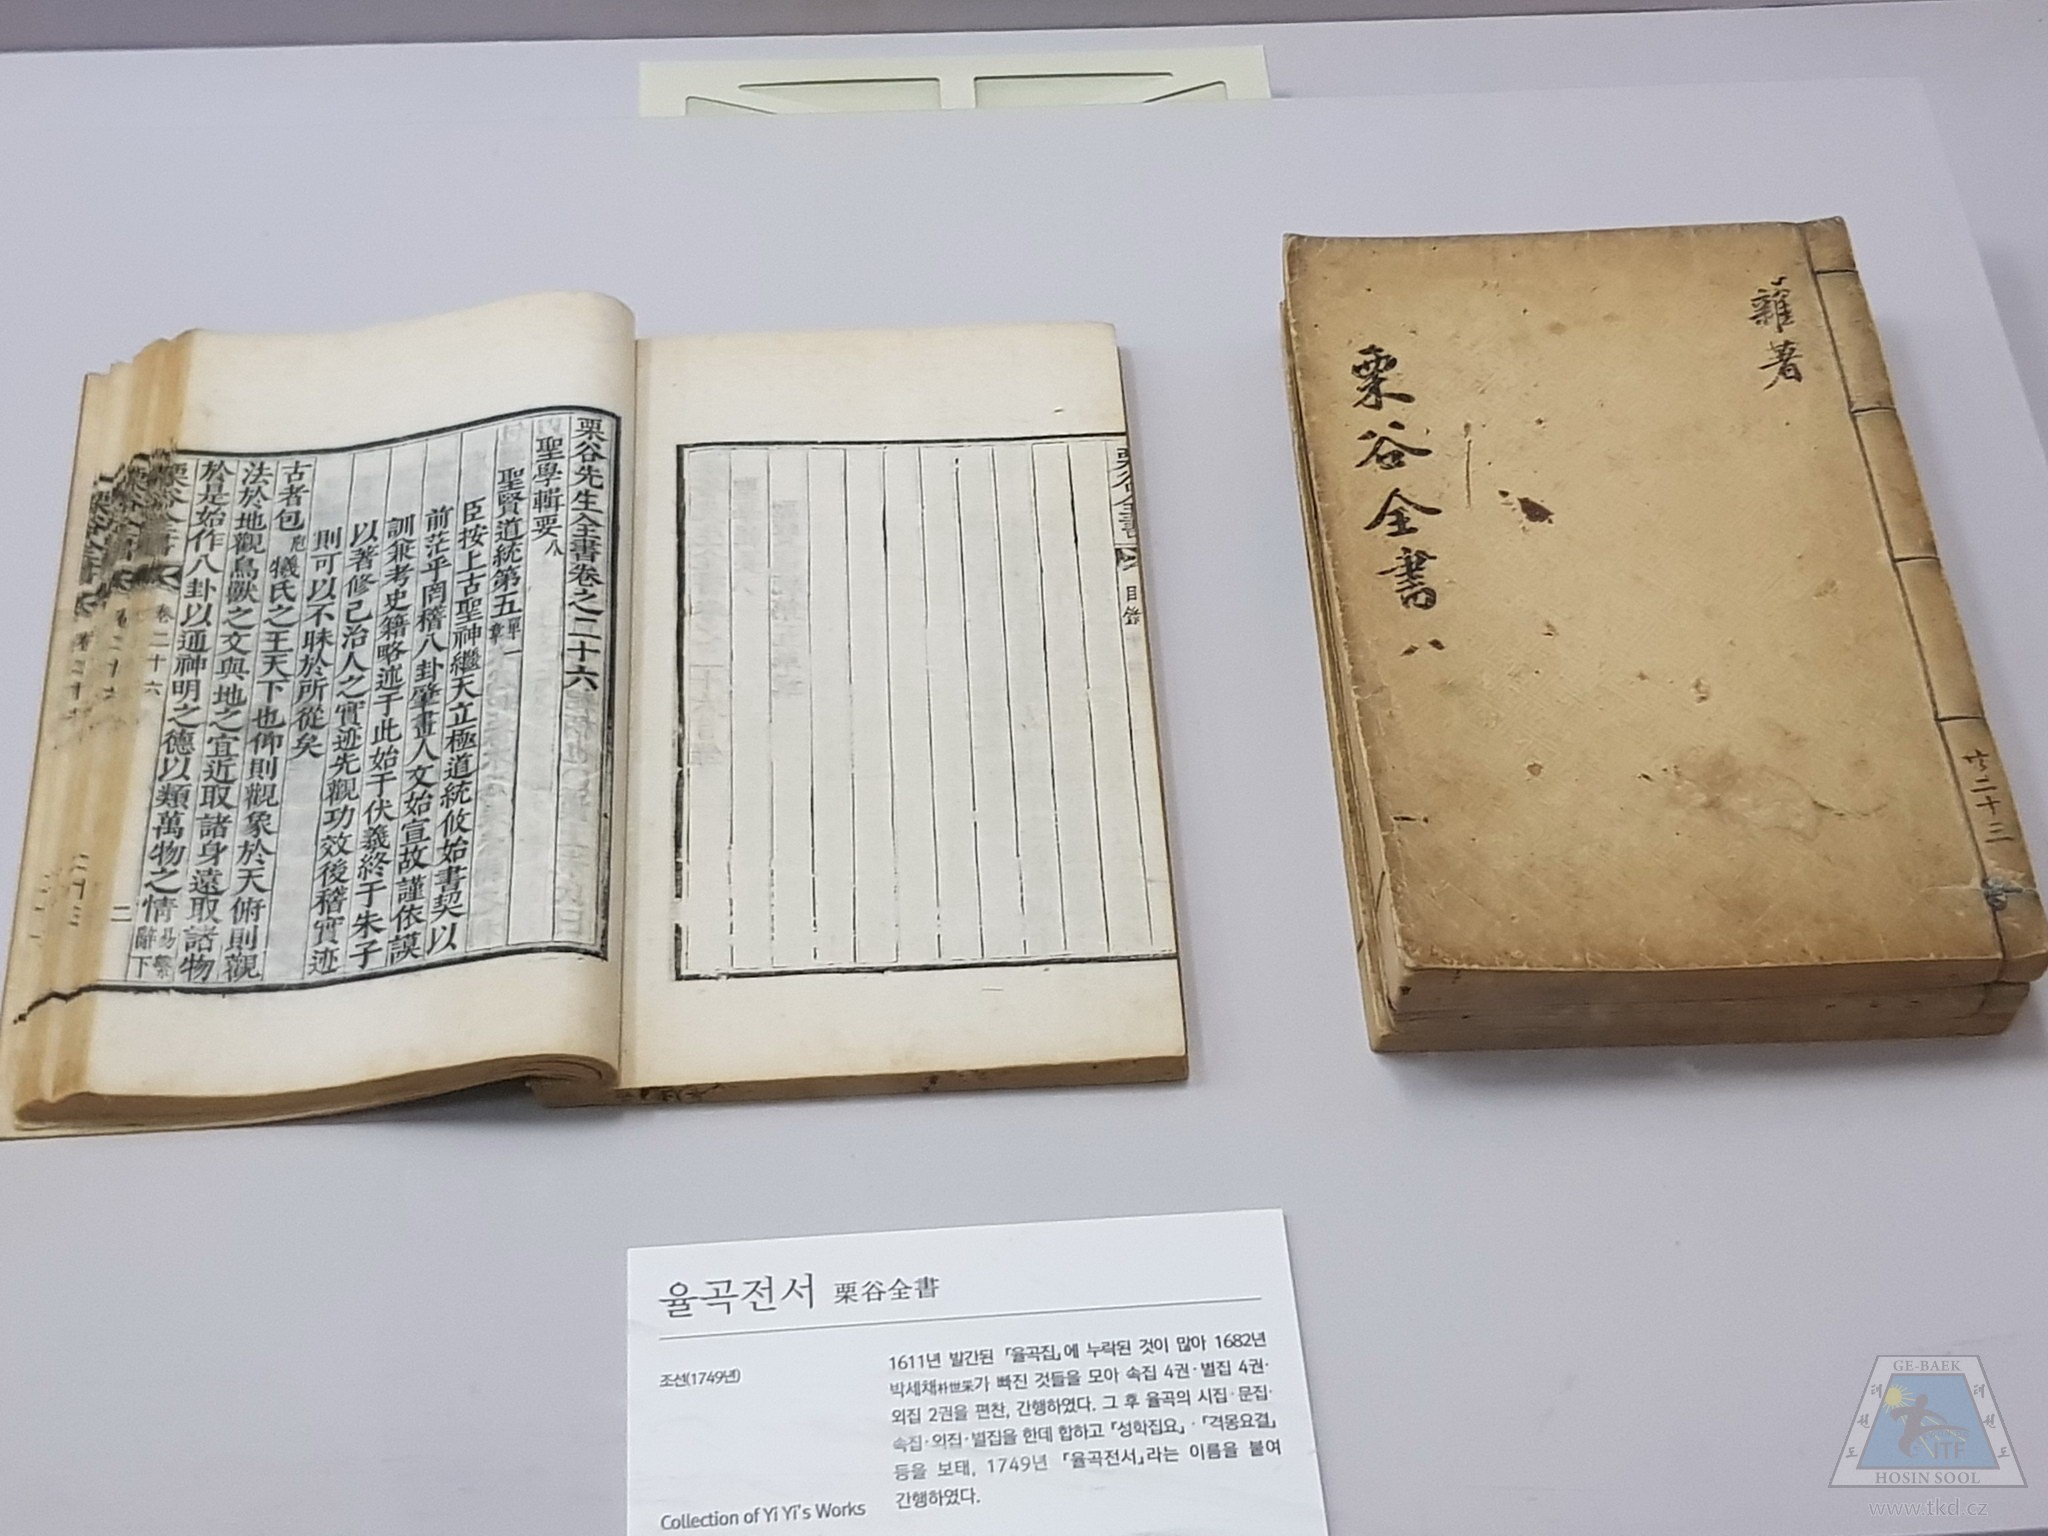 栗谷先生全書卷之二十六
聖學輯要八
聖賢道統第五單章一
臣按上古聖神繼天立極道統攸始書契以
前茫乎罔稽八卦肇畫人文始宣故謹依謨
訓兼考史籍略述于此始于伏羲終于朱子
以著修己治人之實迹先觀功效後稽實迹
則可以不昧於所從矣
古者包犧氏之王天下也仰則觀象於天俯則觀
法於地觀鳥獸之文與地之宜近取諸身遠取諸物
於是始作八卦以通神明之德以類萬物之情易繫辭下
栗谷全書
卷二十六
二
栗谷全書
目錄
雜著
栗谷全書 八
二十三
율곡전서 栗谷全書
조선(1749년)
1611년 발간된 『율곡집』에 누락된 것이 많아 1682년
박세채朴世采가 빠진 것들을 모아 속집 4권·별집 4권·
외집 2권을 편찬, 간행하였다. 그 후 율곡의 시집·문집·
속집·외집·별집을 한데 합하고 『성학집요』·『격몽요결』
등을 보태, 1749년 『율곡전서』라는 이름을 붙여
간행하였다.
Collection of Yi Yi's Works
GE-BAEK
태 태
권 권
도 도
ITF
HOSIN SOOL
www.tkd.cz